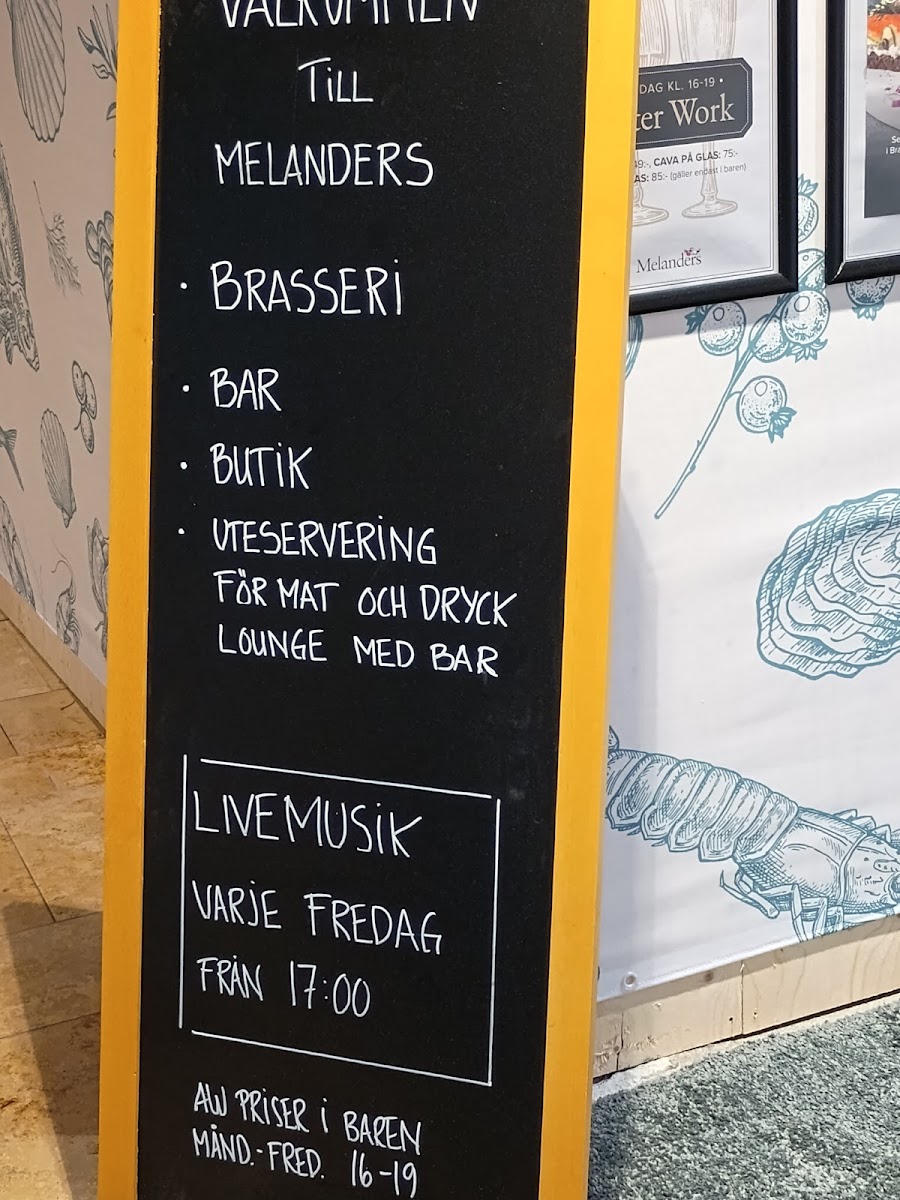 VÄLKOMMEN
TILL
MELANDERS
· BRASSERI
· BAR
· BUTIK
· UTESERVERING
FÖR MAT OCH DRYCK
LOUNGE MED BAR
LIVEMUSIK
VARJE FREDAG
FRÅN 17:00
AW PRISER I BAREN
MÅND.-FRED. 16-19
DAG KL. 16-19 •
ter Work
49:-, CAVA PÅ GLAS: 75:-
AS: 85:- (gäller endast i baren)
Melanders